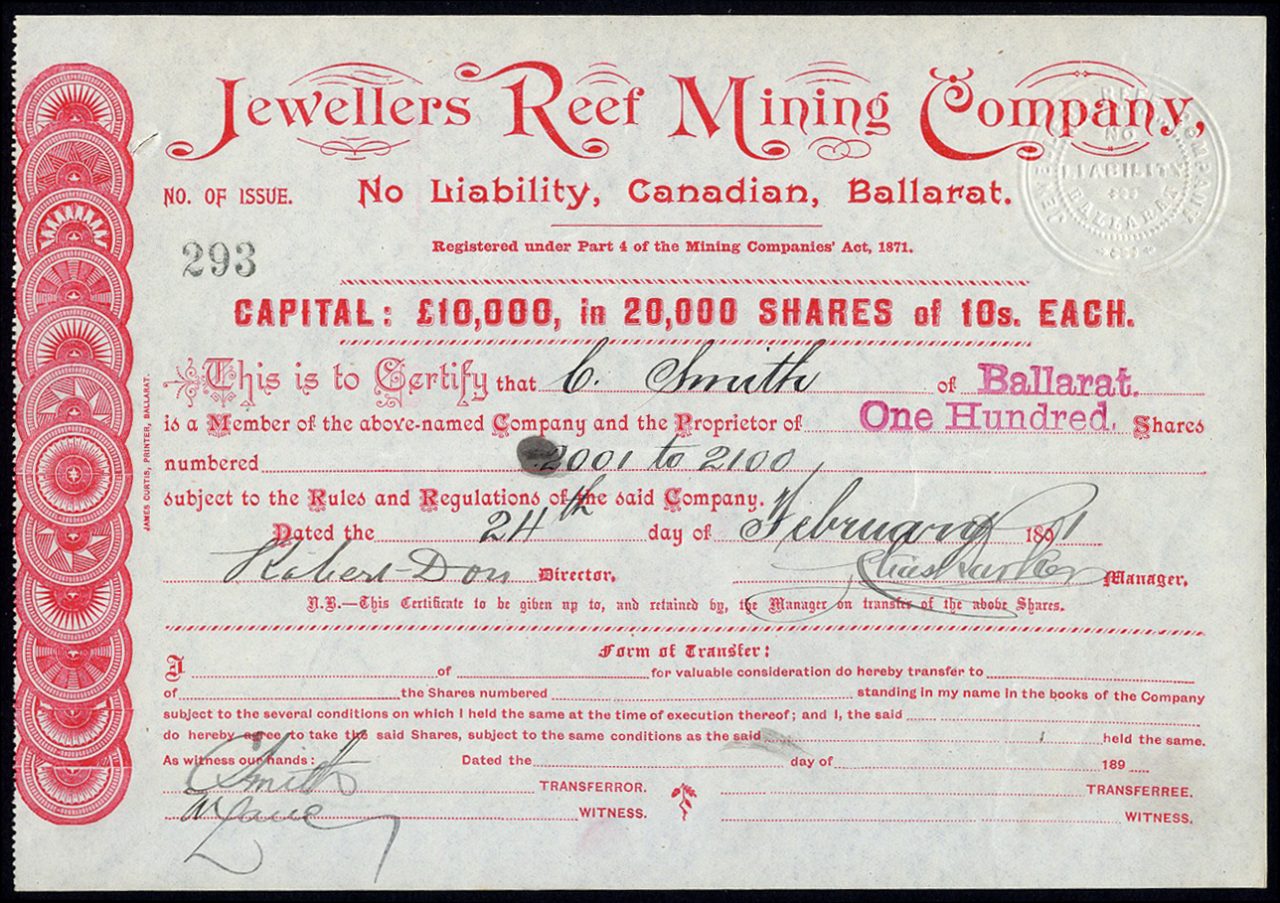 Jewellers Reef Mining Company,
NO. OF ISSUE. No Liability, Canadian, Ballarat.
JEWELLERS REEF MINING COMPANY
NO
LIABILITY
BALLARAT
Registered under Part 4 of the Mining Companies' Act, 1871.
293
CAPITAL: £10,000, in 20,000 SHARES of 10s. EACH.
This is to Certify that C. Smith of Ballarat.
is a Member of the above-named Company and the Proprietor of One Hundred. Shares
numbered 2001 to 2100,
subject to the Rules and Regulations of the said Company.
Dated the 24th day of February 1891
Robert Don Director. Manager.
N.B.—This Certificate to be given up to, and retained by, the Manager on transfer of the above Shares.
JAMES CURTIS, PRINTER, BALLARAT.
Form of Transfer:
I of for valuable consideration do hereby transfer to
of the Shares numbered standing in my name in the books of the Company
subject to the several conditions on which I held the same at the time of execution thereof; and I, the said
do hereby agree to take the said Shares, subject to the same conditions as the said held the same.
As witness our hands: Dated the day of 189
C Smith TRANSFERROR. TRANSFERREE.
WITNESS. WITNESS.